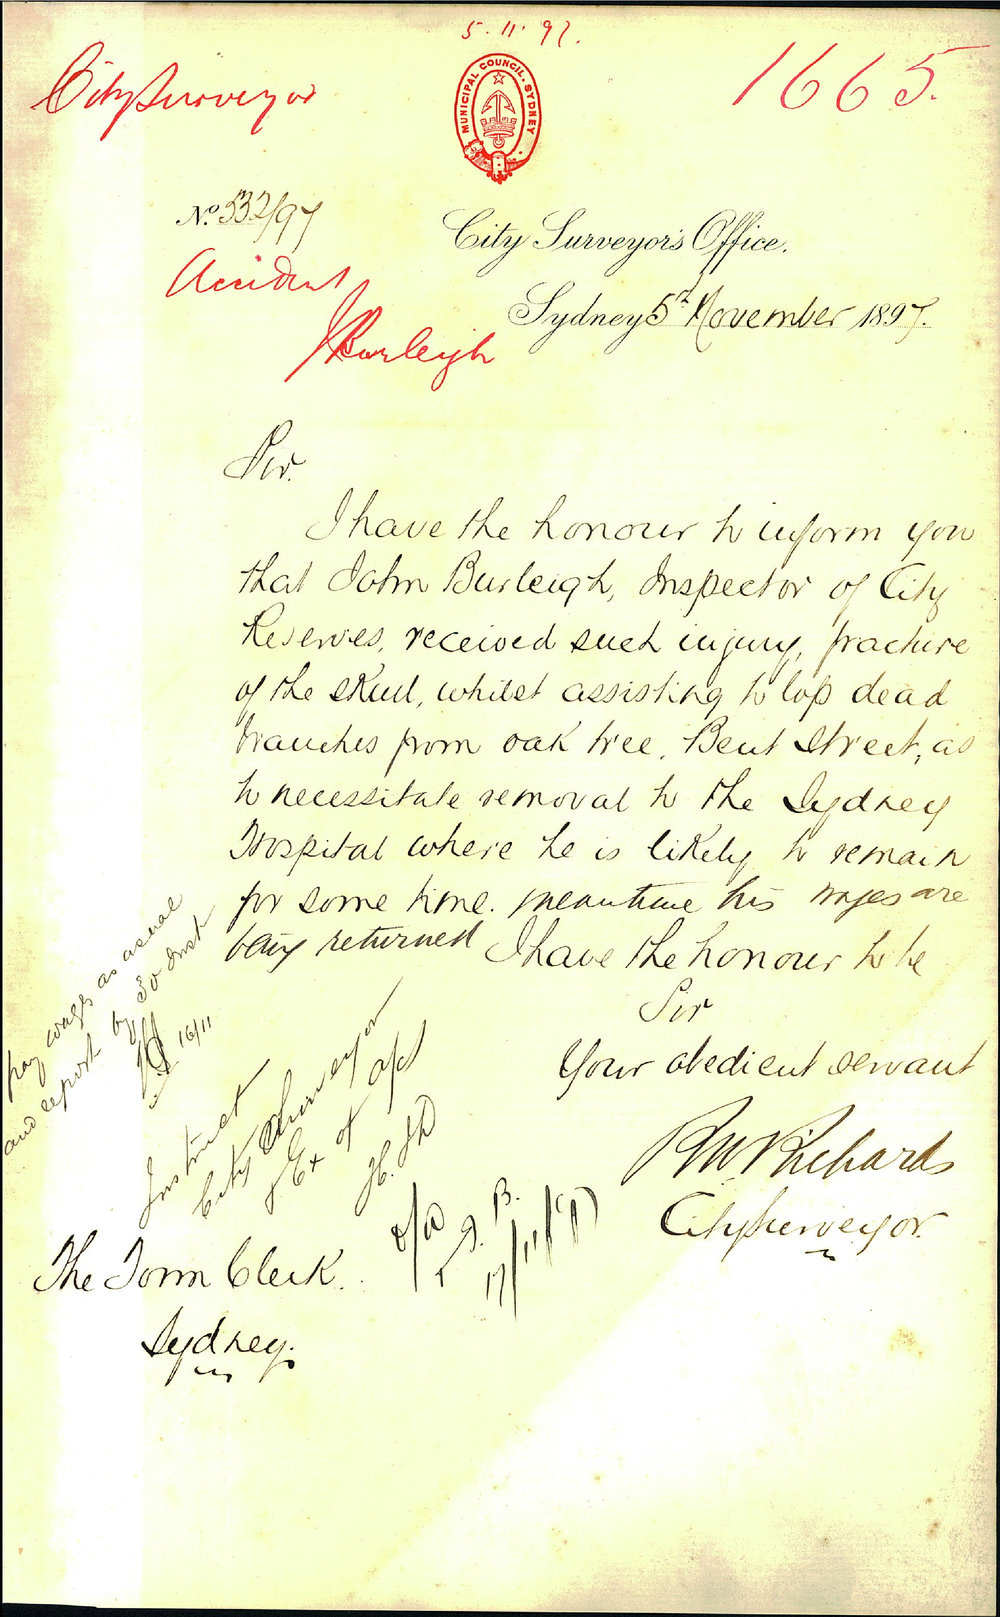 5. 11. 97.
City Surveyor
MUNICIPAL COUNCIL. SYDNEY
1665.
No. 532/97
City Surveyor's Office.
Accident
Sydney 5th November 1897.
J Burleigh
Sir.
I have the honour to inform you
that John Burleigh, Inspector of City
Reserves, received such injury, fracture
of the skull, whilst assisting to lop dead
branches from oak tree, Bent Street, as
to necessitate removal to the Sydney
Hospital where he is likely to remain
for some time. meantime his wages are
being returned
I have the honour to be
Sir
Your obedient servant
R W Richards
City Surveyor.
pay wages as usual
and report by 30 Inst
16/11
Instruct
City Surveyor
Ex of
The Town Clerk.
Sydney.